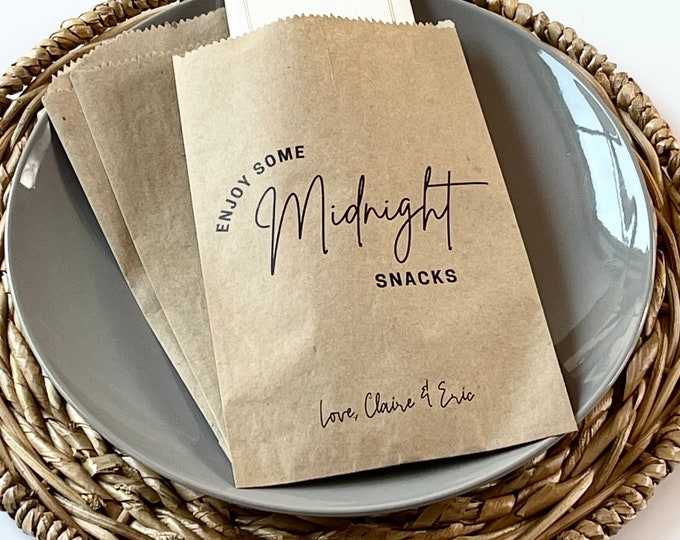 ENJOY SOME
Midnight
SNACKS
Love, Claire & Eric